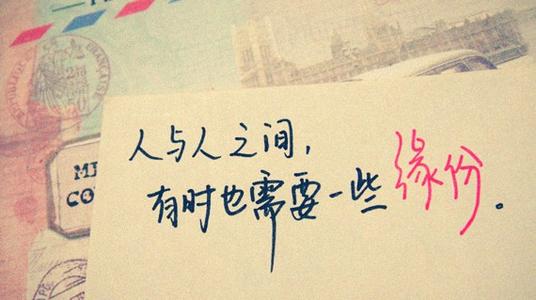 REPUBLIQUE FRANCAISE
人与人之间，
有时也需要一些缘份。